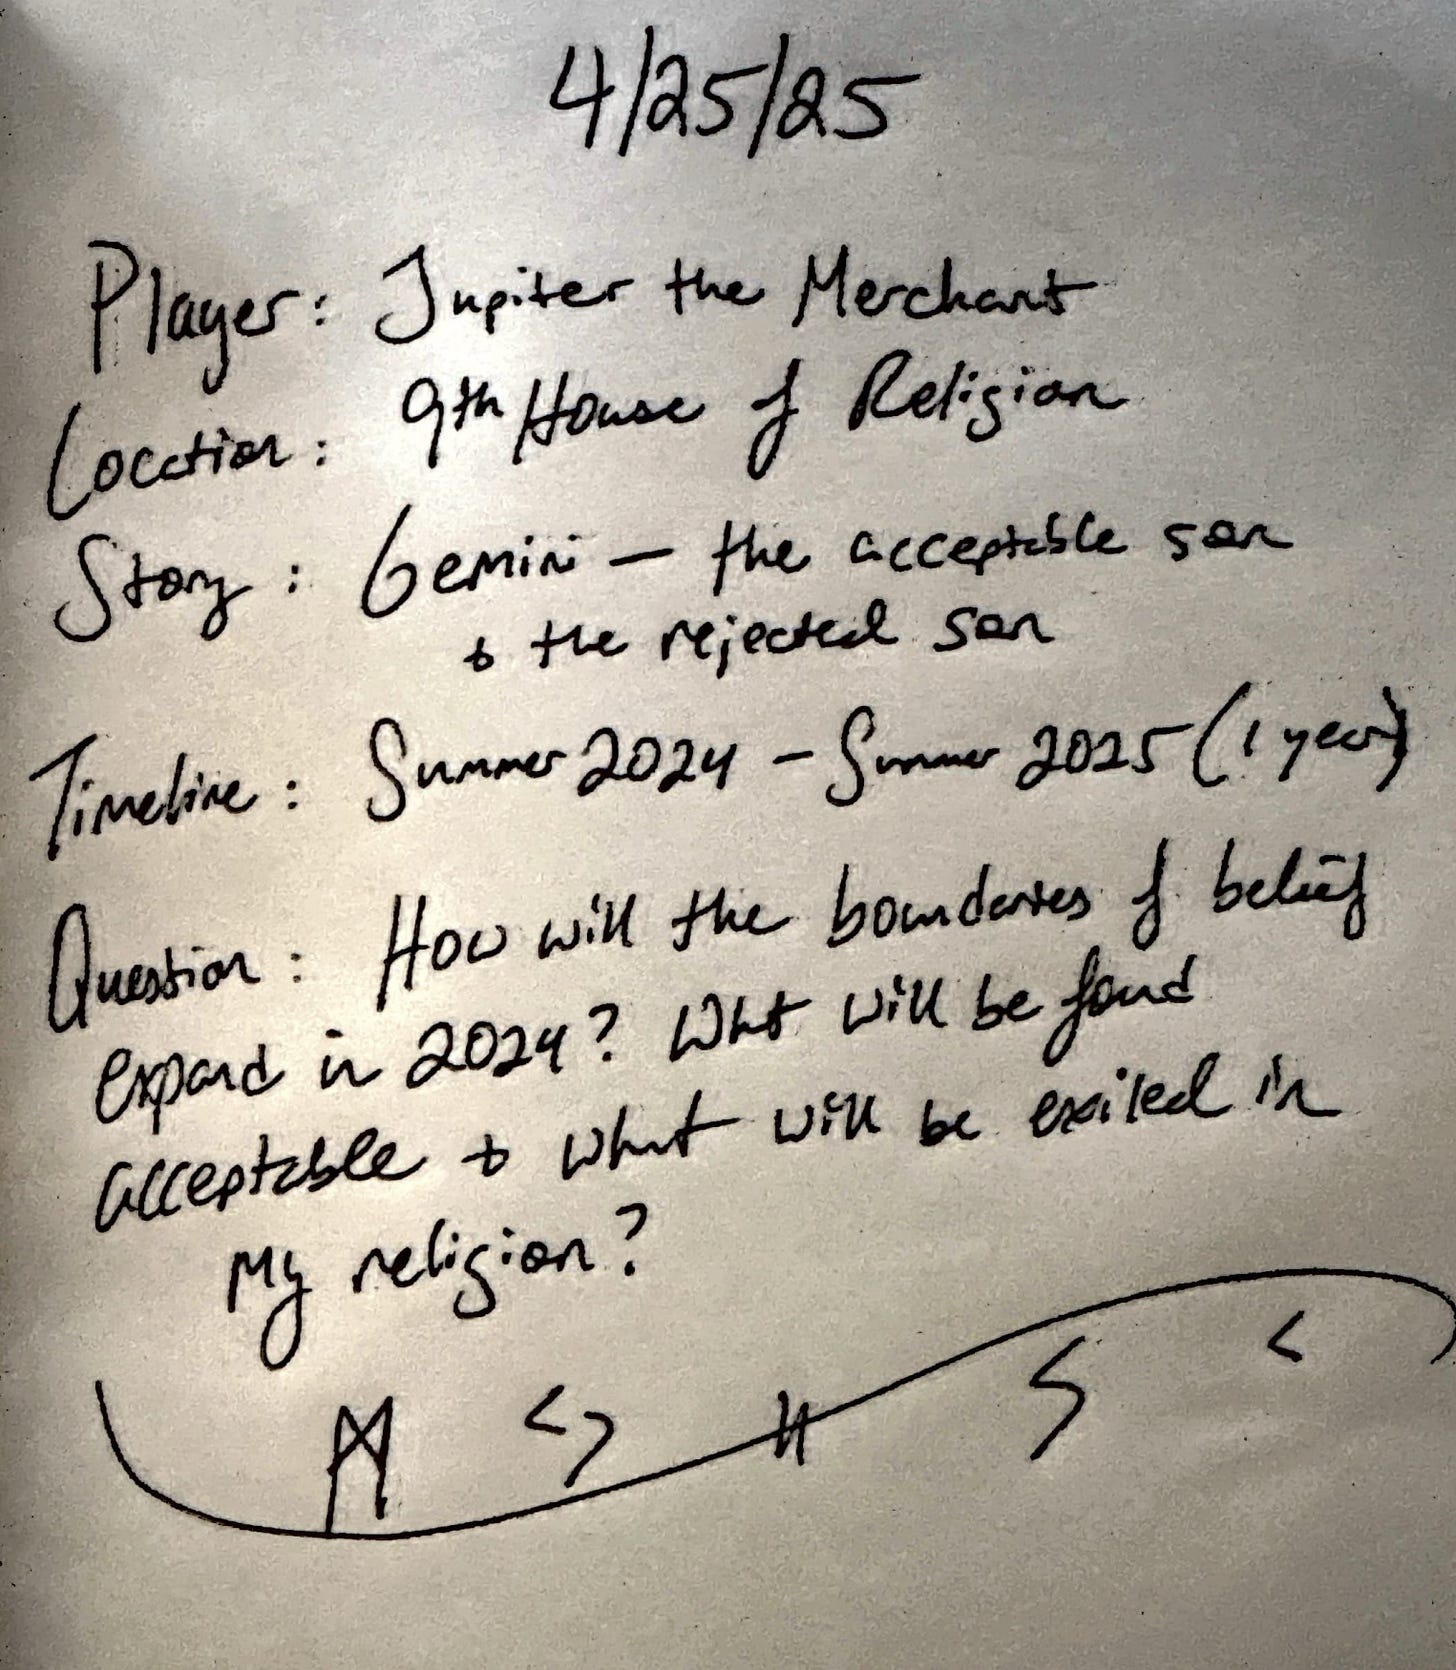 4/25/25
Player: Jupiter the Merchant
Location: 9th House of Religion
Story: Gemini — the acceptable son
& the rejected son
Timeline: Summer 2024 - Summer 2025 (1 year)
Question: How will the boundaries of belief
expand in 2024? What will be found
acceptable & what will be exiled in
my religion?